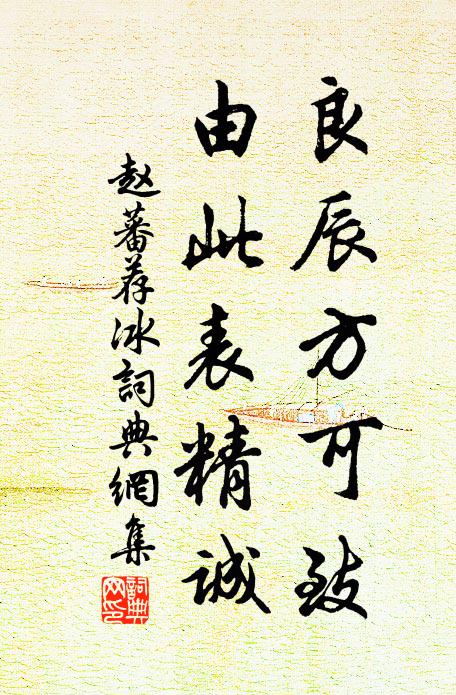 良辰方可致
由此表精誠
赵蕃荐冰詞典網集
詞典
网印